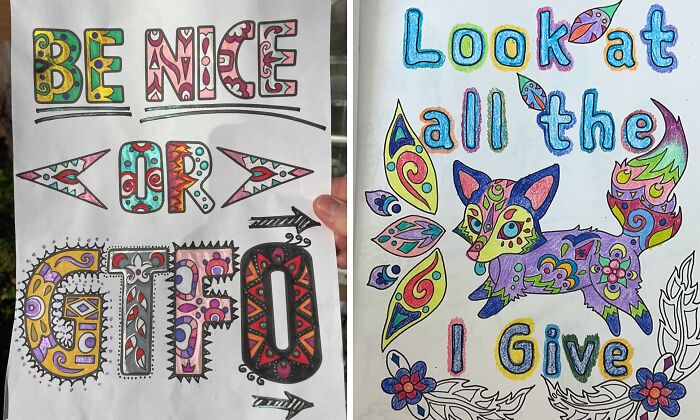 BE NICE
OR
GTFO
Look at
all the
I Give